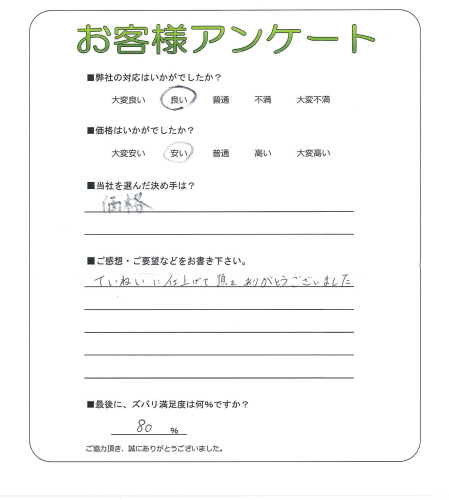 お客様アンケート
■弊社の対応はいかがでしたか？
大変良い 良い 普通 不満 大変不満
■価格はいかがでしたか？
大変安い 安い 普通 高い 大変高い
■当社を選んだ決め手は？
価格
■ご感想・ご要望などをお書き下さい。
ていねいに仕上げて頂き ありがとうございました
■最後に、ズバリ満足度は何%ですか？
80 %
ご協力頂き、誠にありがとうございました。